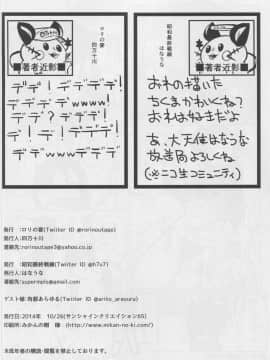 ロリの宴
四万十川
■著者近影■
デデ!デデデデ!
デデデデwww!
デデデデデデ!
www デデデデ
昭和最終戦線
はなうな
■著者近影■
おれの描いた
ちくまかわいくね?
おれは好きだよ
あ、大天使はなうな
放送局よろしくね。
(※ニコ生コミュニティ)
発行 :ロリの宴(Twitter ID @rorinoutage)
発行人:四万十川
連絡先:rorinoutage3@yahoo.co.jp
発行 :昭和最終戦線(Twitter ID @h7u7)
発行人:はなうな
連絡先:supermels@gmail.com
ゲスト様:有都あらゆる(Twitter ID @arito_arayuru)
発行日:2014年 10/26(サンシャインクリエイション65)
印刷所:みかんの樹 様 (http://www.mikan-no-ki.com/)
未成年者の購読・閲覧を禁止しております。